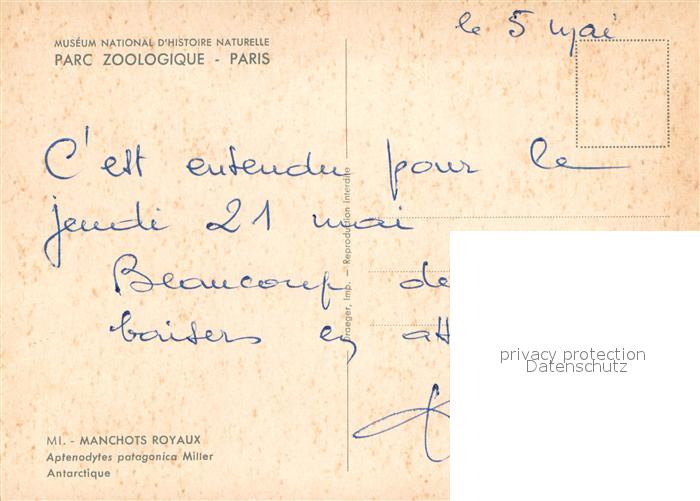 le 5 mai
MUSÉUM NATIONAL D'HISTOIRE NATURELLE
PARC ZOOLOGIQUE - PARIS
C'est entendu pour le
jeudi 21 mai
Beaucoup de
baisers en att
Draeger, Imp. — Reproduction interdite
privacy protection
Datenschutz
MI. - MANCHOTS ROYAUX
Aptenodytes patagonica Miller
Antarctique